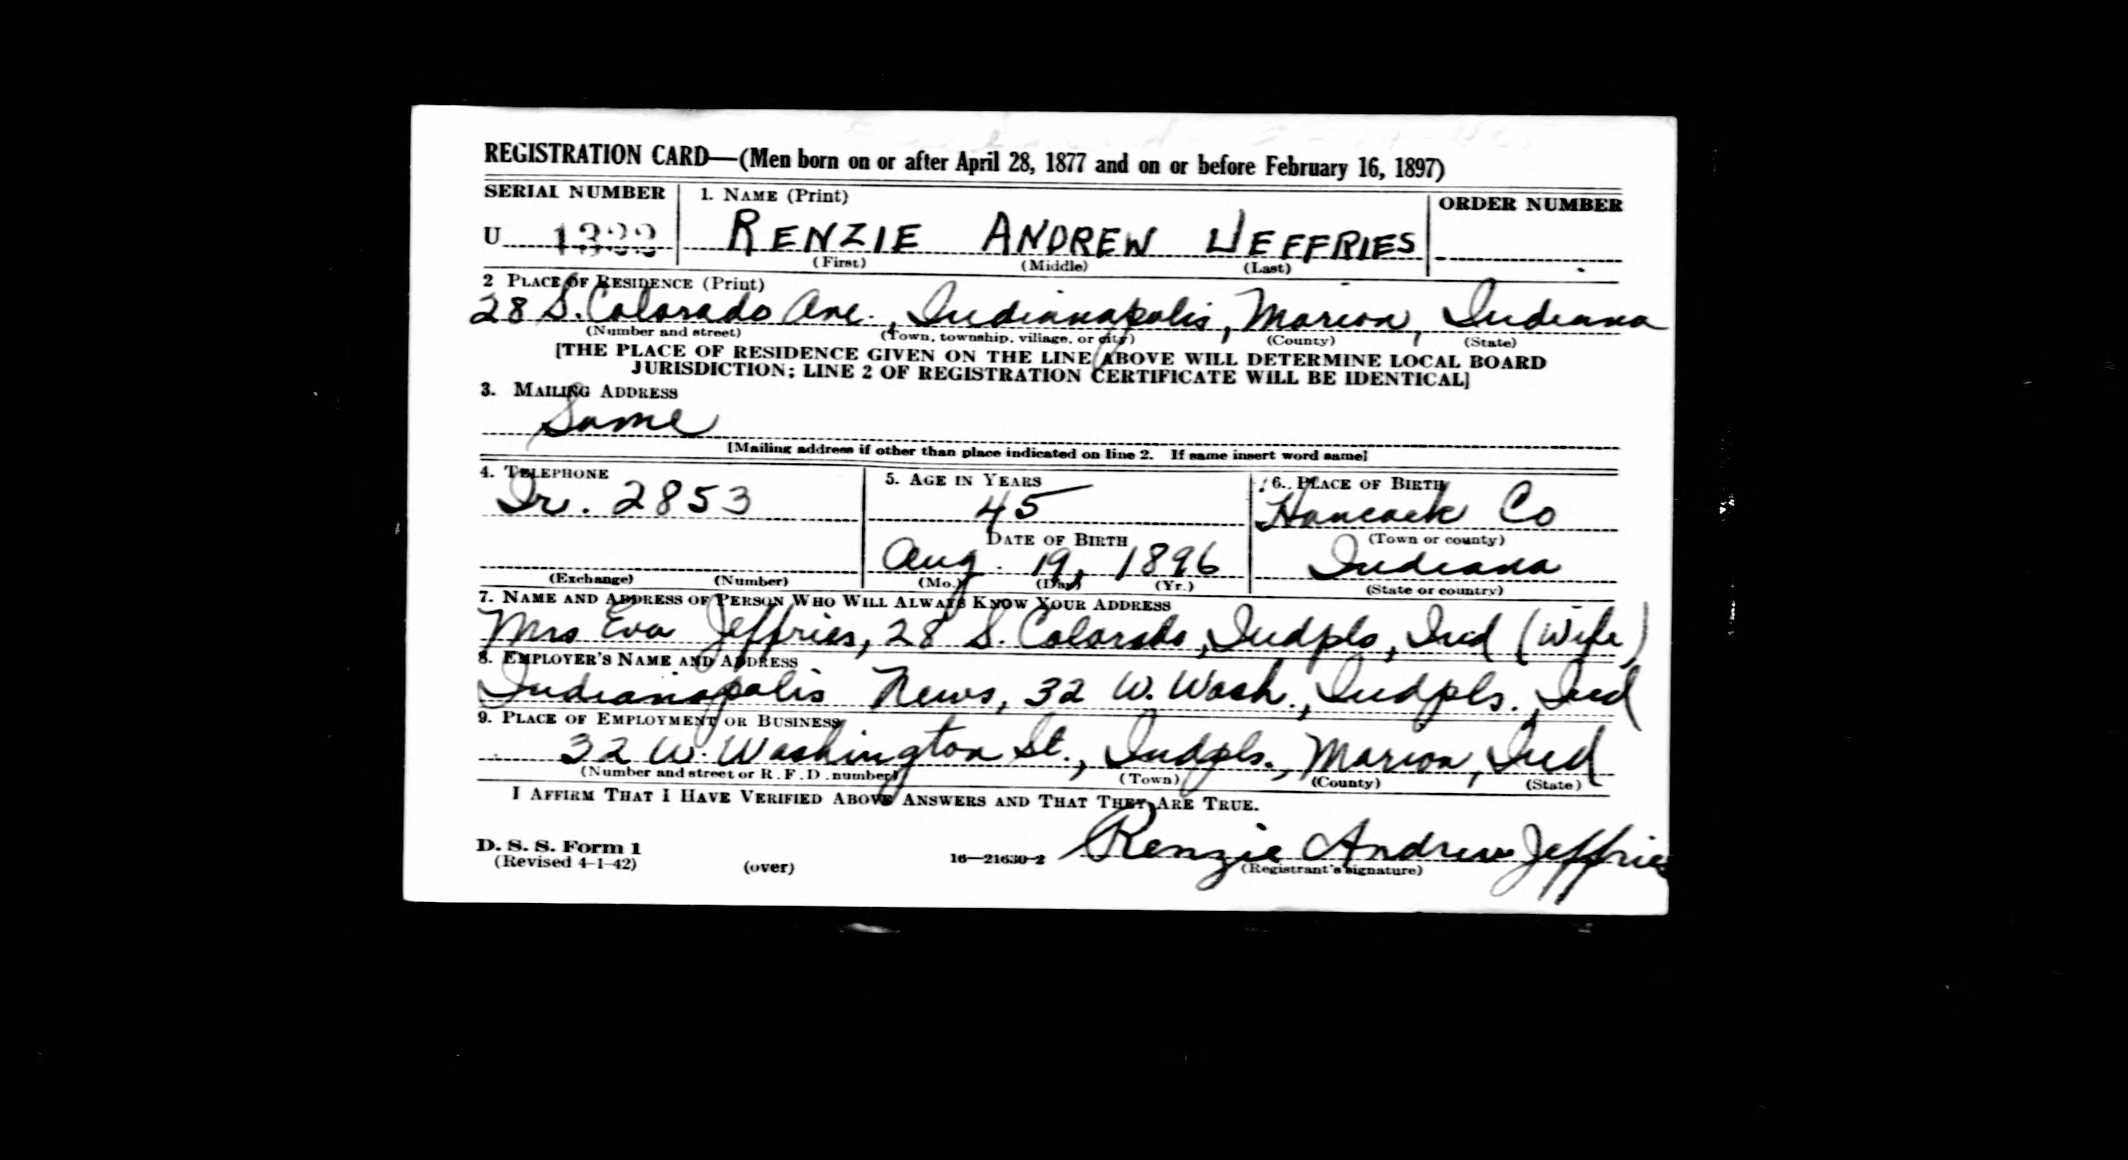 REGISTRATION CARD—(Men born on or after April 28, 1877 and on or before February 16, 1897)
SERIAL NUMBER 1. NAME (Print) ORDER NUMBER
U RENZIE ANDREW JEFFRIES
(First) (Middle) (Last)
2 PLACE OF RESIDENCE (Print)
28 S. Colorado Ave., Indianapolis, Marion, Indiana
(Number and street) (Town, township, village, or city) (County) (State)
[THE PLACE OF RESIDENCE GIVEN ON THE LINE ABOVE WILL DETERMINE LOCAL BOARD
JURISDICTION; LINE 2 OF REGISTRATION CERTIFICATE WILL BE IDENTICAL]
3. MAILING ADDRESS
Same
[Mailing address if other than place indicated on line 2. If same insert word same]
4. TELEPHONE 5. AGE IN YEARS 6. PLACE OF BIRTH
Ir. 2853 45 Hancock Co
DATE OF BIRTH (Town or county)
Aug. 19, 1896 Indiana
(Exchange) (Number) (Mo.) (Day) (Yr.) (State or country)
7. NAME AND ADDRESS OF PERSON WHO WILL ALWAYS KNOW YOUR ADDRESS
Mrs Eva Jeffries, 28 S. Colorado, Indpls, Ind (Wife)
8. EMPLOYER'S NAME AND ADDRESS
Indianapolis News, 32 W. Wash., Indpls. Ind
9. PLACE OF EMPLOYMENT OR BUSINESS
32 W. Washington St., Indpls., Marion, Ind
(Number and street or R. F. D. number) (Town) (County) (State)
I AFFIRM THAT I HAVE VERIFIED ABOVE ANSWERS AND THAT THEY ARE TRUE.
D. S. S. Form 1 Renzie Andrew Jeffries
(Revised 4-1-42) (over) 16—21630-2 (Registrant's signature)